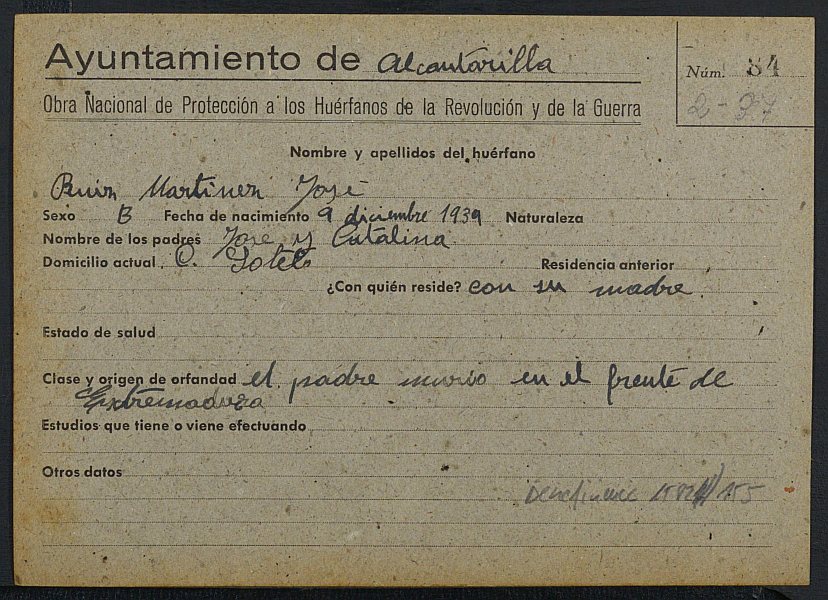 Ayuntamiento de Alcantarilla
Núm. 84
2-27
Obra Nacional de Protección a los Huérfanos de la Revolución y de la Guerra
Nombre y apellidos del huérfano
Ruiz Martinez José
Sexo B Fecha de nacimiento 9 diciembre 1939 Naturaleza
Nombre de los padres Jose y Catalina
Domicilio actual C. Sotelo Residencia anterior
¿Con quién reside? con su madre
Estado de salud
Clase y origen de orfandad el padre murio en el frente de
Extremadura
Estudios que tiene o viene efectuando
Otros datos